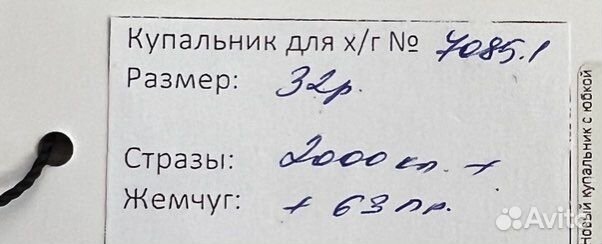 Купальник для х/г № 7085.1
Размер: 32р.
Стразы: 2000 кп. +
Жемчуг: + 63 пр.
новый купальник с юбкой
Avito